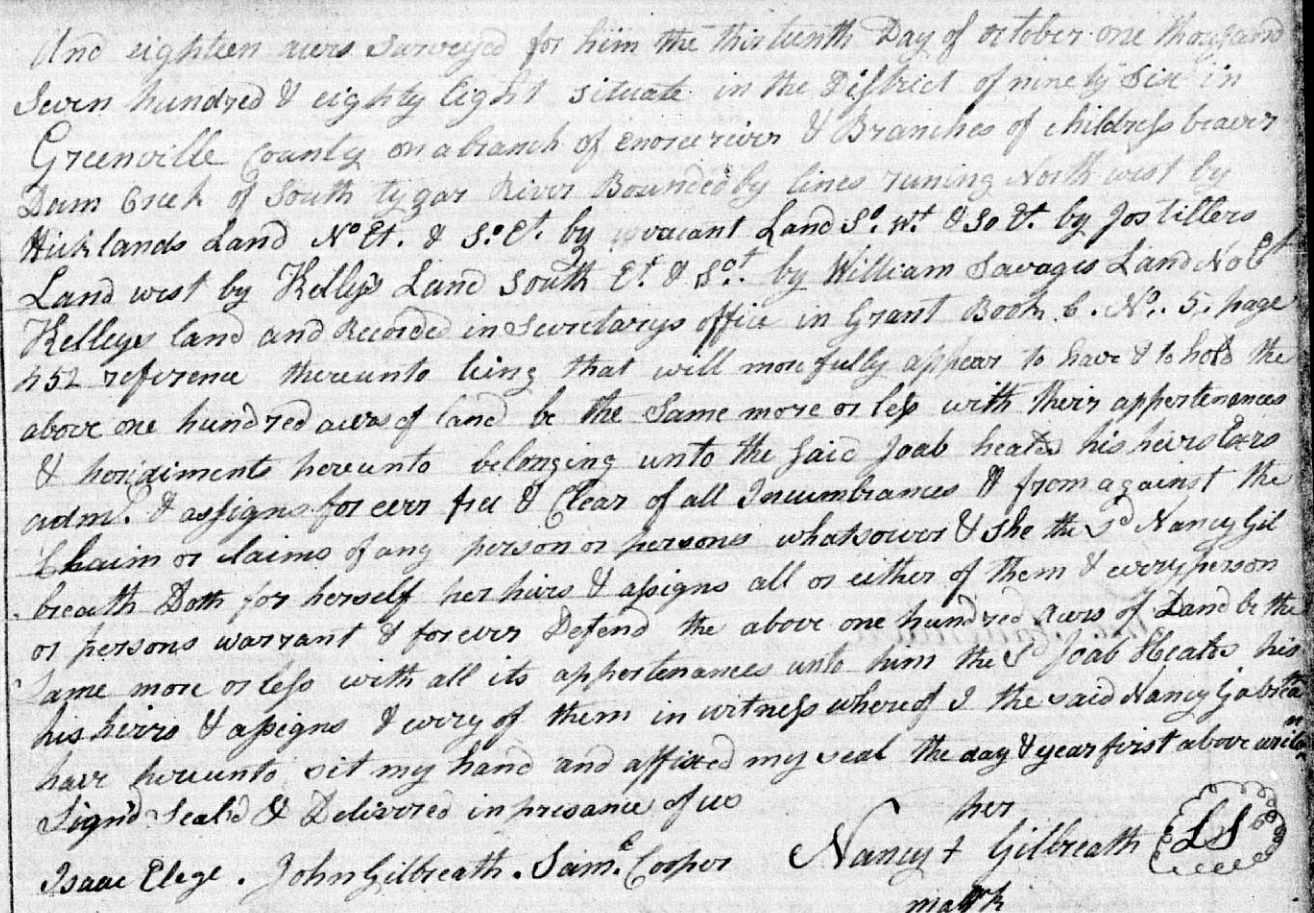 And eighteen acres Surveyed for him the thirteenth Day of october one thousand
Seven hundred & eighty Eight situate in the District of ninety Six in
Greenville County on a branch of enoree river & Branches of childress beaver
Dam Creek of South tygar River Bounded by lines runing North west by
Hicklands Land No Et. & So. Et. by vacant Land So. Wt. & So Et. by Jos Tillers
Land west by Kellys Land South Et. & So. by William Savages Land No Et
Kelleys land and Recorded in Secretarys office in Grant Book 6. No. 5. page
452 reference thereunto being that will more fully appear to have & to hold the
above one hundred acres of land be the Same more or less with their appertenances
& heridiments hereunto belonging unto the Said Joab heates his heirs Exrs
adms. & assigns for ever free & Clear of all Incumbrances & from against the
Claim or claims of any person or persons whatsower & She the Sd Nancy Gil
breath Doth for herself her hirs & assigns all or either of them & every person
or persons warrant & forever Defend the above one hundred Acres of Land be the
Same more or less with all its appertenances unto him the Sd Joab Heates his
his heirs & assigns & every of them in witness whereof I the said Nancy
have hereunto sit my hand and affixed my seal the day & year first above writen
Sign'd Seal'd & Delivered in presance of us
her
Isaac Elege. John Gilbreath. Saml. Cooper Nancy + Gilbreath LS
mark